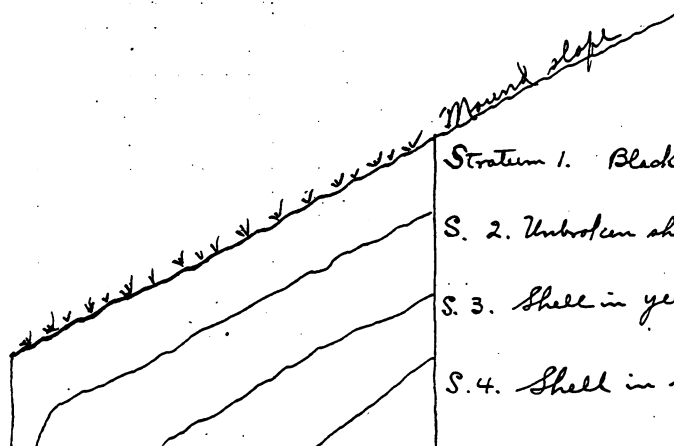 Mound slope
Stratum 1. Black
S. 2. Unbroken sh
S. 3. Shell in ye
S. 4. Shell in